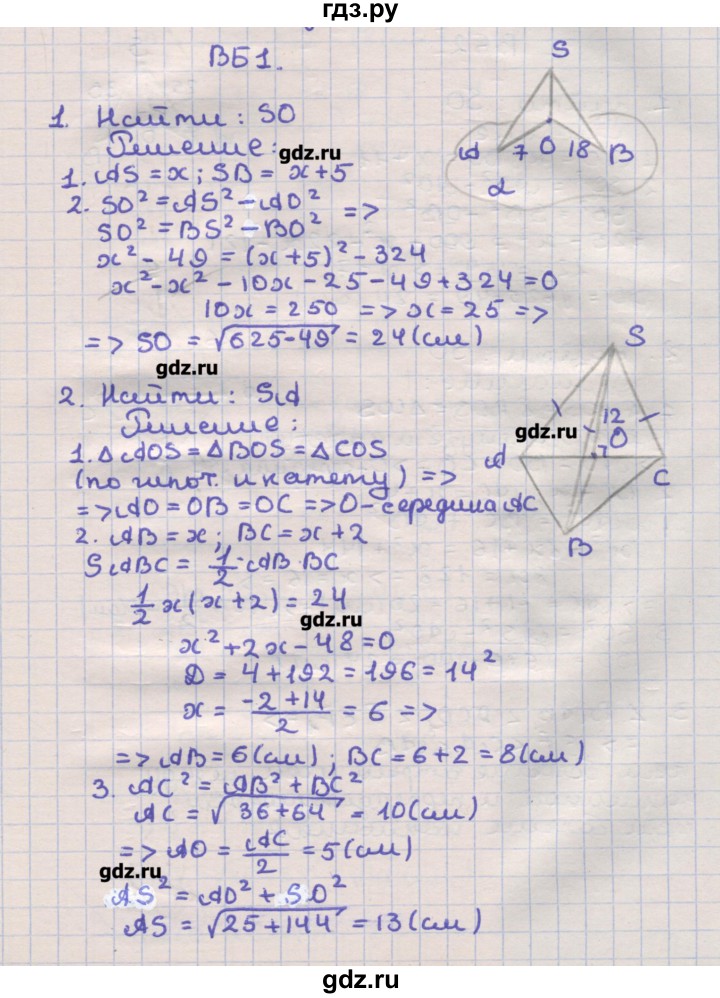 гдз.ру
ВБ1.
S
1. Найти: SO
Решение:
gdz.ru
A 7 O 18 B
α
1. AS = x; SB = x+5
2. SO² = AS² - AO² =>
SO² = BS² - BO²
x² - 49 = (x+5)² - 324
x² - x² - 10x - 25 - 49 + 324 = 0
10x = 250 => x = 25 =>
=> SO = √625-49 = 24 (см)
gdz.ru
S
2. Найти: SA
Решение:
12
gdz.ru
O
A
C
B
1. △AOS = △BOS = △COS
(по гипот. и катету) =>
=> AO = OB = OC => O - середина AC
2. AB = x; BC = x+2
SABC = 1/2 · AB · BC
1/2 x(x+2) = 24
gdz.ru
x² + 2x - 48 = 0
D = 4 + 192 = 196 = 14²
x = -2+14/2 = 6 =>
=> AB = 6 (см); BC = 6+2 = 8 (см)
3. AC² = AB² + BC²
AC = √36+64 = 10 (см)
=> AO = AC/2 = 5 (см)
gdz.ru
AS² = AO² + SO²
AS = √25+144 = 13 (см)
gdz.ru